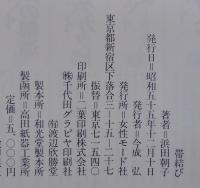 帯結び
著者＝浜田朝子
発行日＝昭和五十五年十二月十日
発行者＝今成　弘
発行所＝女性モード社
東京都新宿区下落合三―十五―二十七
振替＝東京七―一五四〇
印刷所＝二葉印刷株式会社
㈱千代田グラビヤ印刷社
㈲渡辺欣勝堂
製本所＝和光堂製本所
製函所＝高田紙器工業所
定価＝五、〇〇〇円